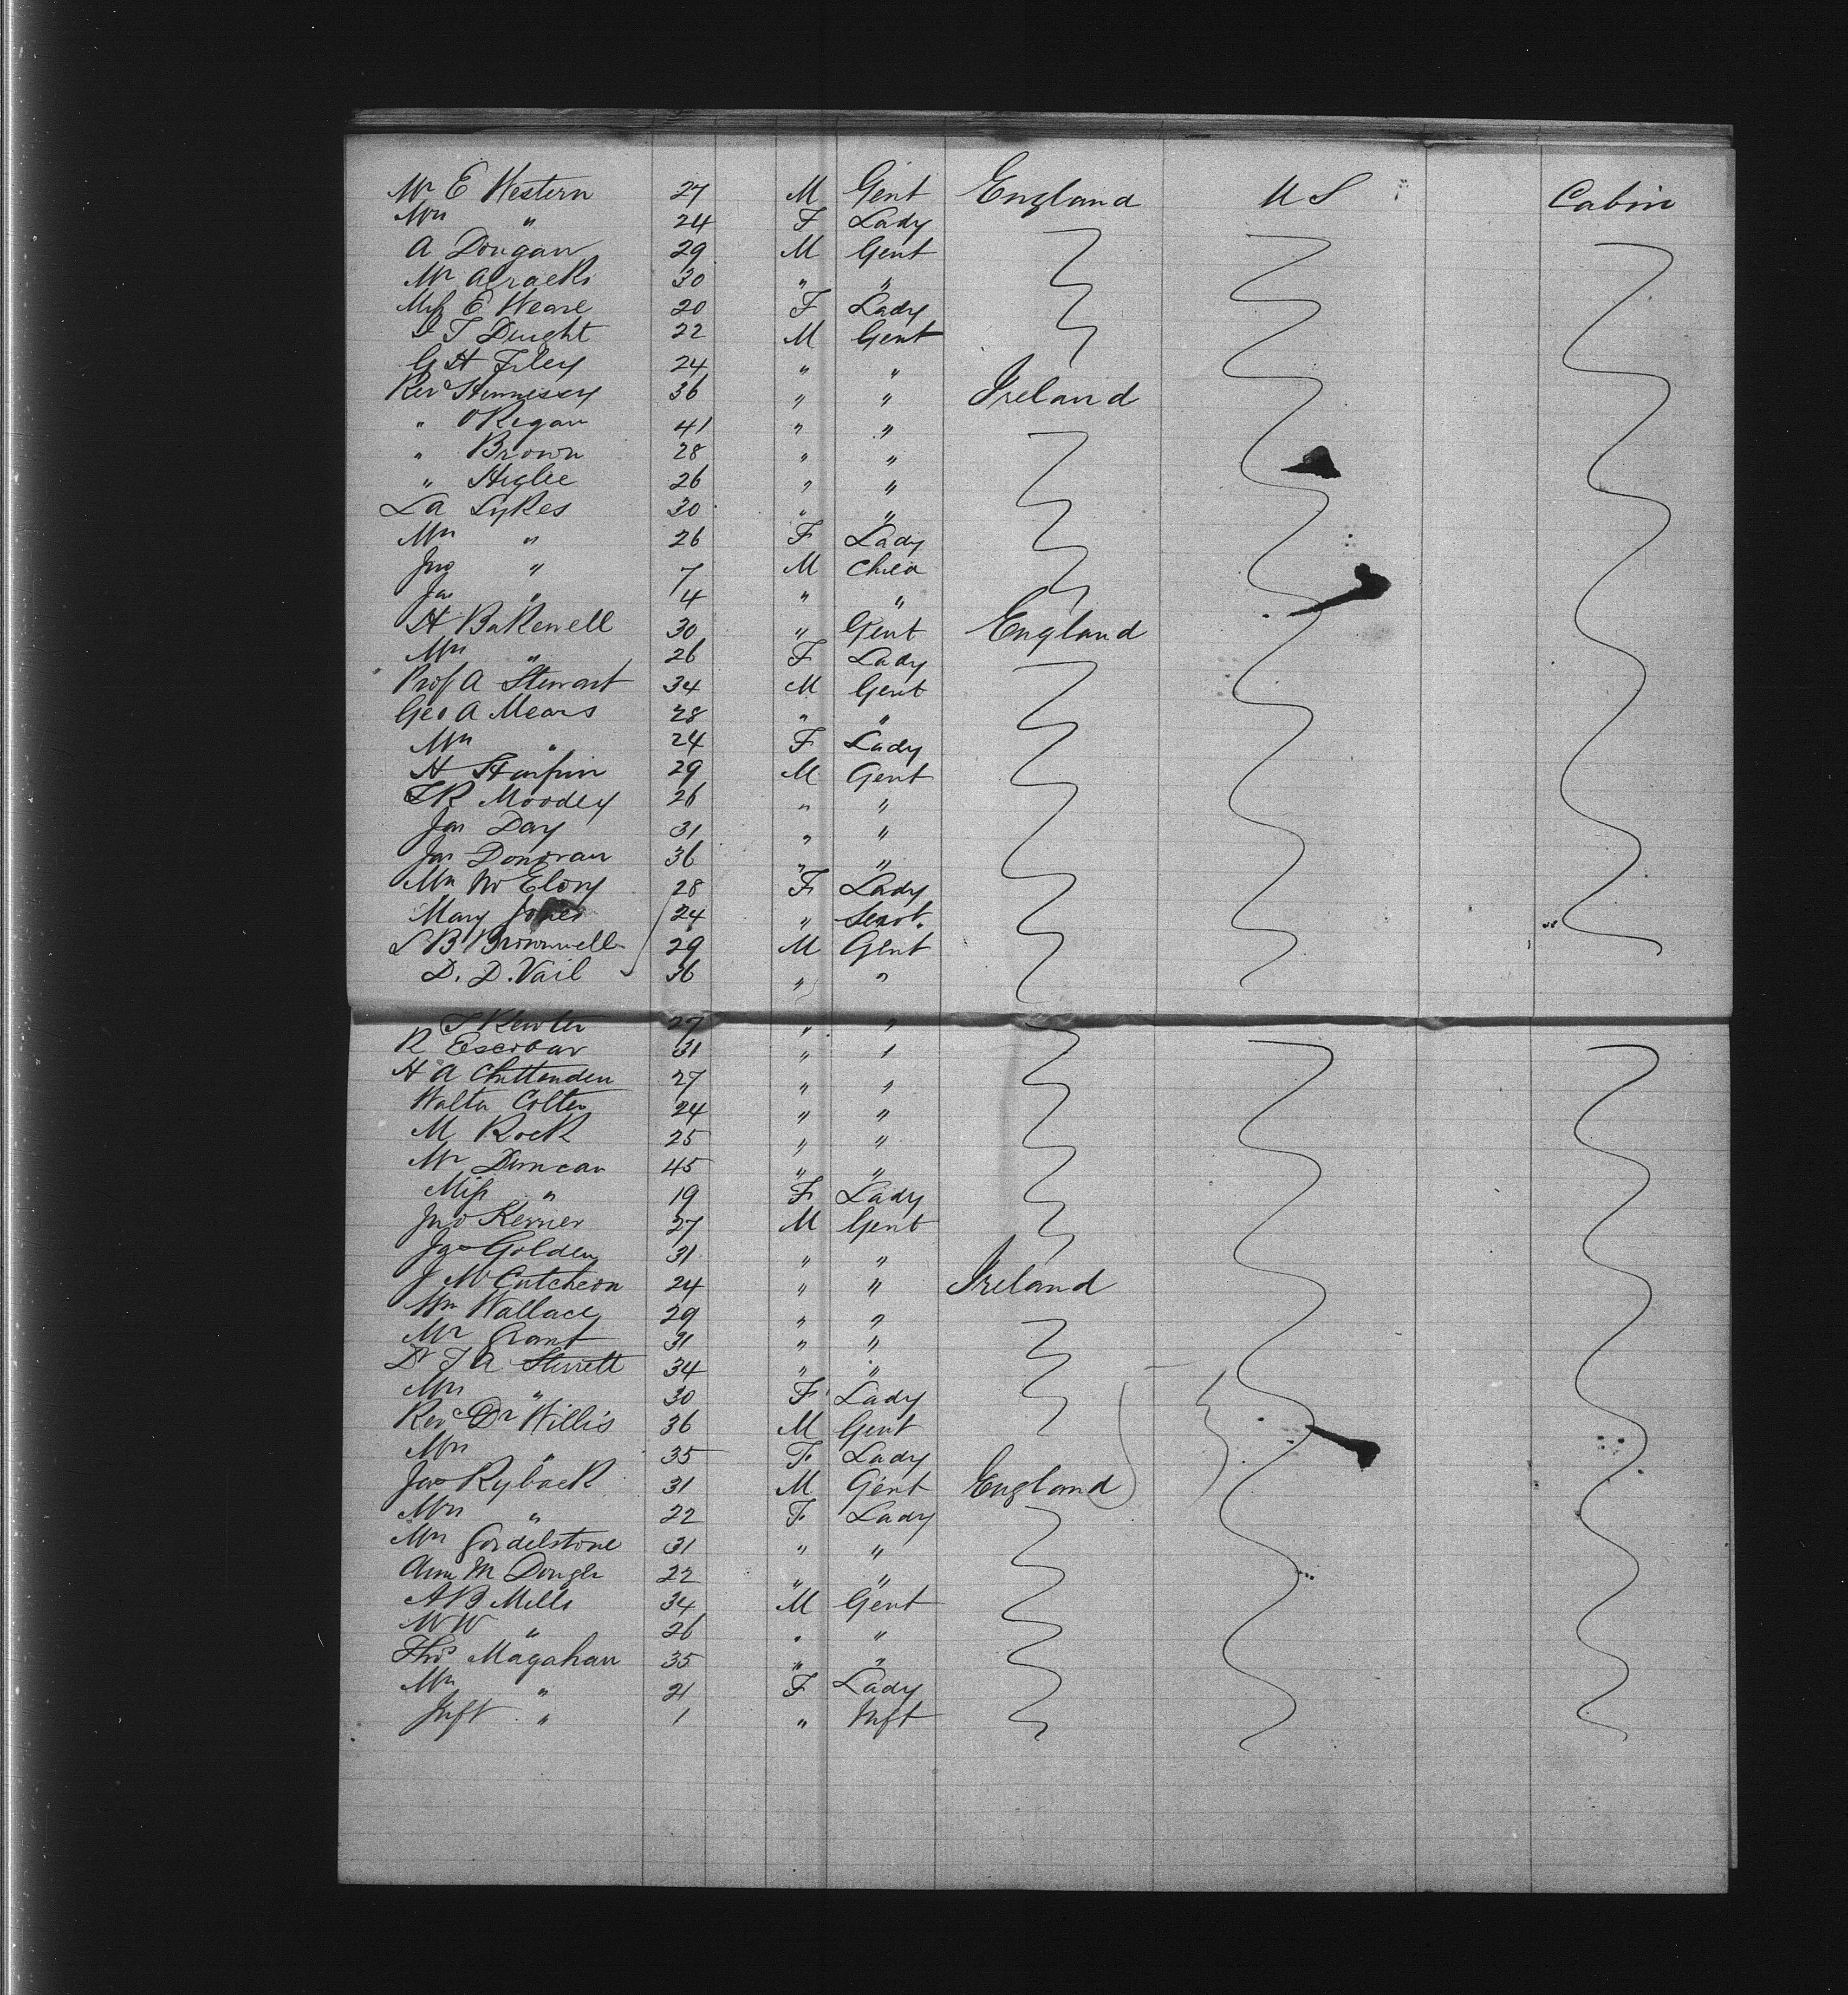 Mr E Western 27 M Gent England U S Cabin
Mrs " 24 F Lady
A Dougan 29 M Gent
Mr 30 " "
Miss E Weare 20 F Lady
T Dwight 22 M Gent
G H Filey 24 " "
Revd Hennessey 36 " " Ireland
" O'Regan 41 " "
" Brown 28 " "
" Higlee 26 " "
L A Sykes 30 " "
Mrs " 26 F Lady
Jno " 7 M Child
Jas " 4 " "
H Bakewell 30 " Gent England
Mrs " 26 F Lady
Prof A Stewart 34 M Gent
Geo A Mears 28 " "
Mrs " 24 F Lady
H 29 M Gent
R Moodey 26 " "
Jas Day 31 " "
Jas Donovan 36 " "
Mrs McElory 28 F Lady
Mary Jones 24 " Servt.
S B Brownwell 29 M Gent
D. D. Vail 36 " "
27 " "
R Escobar 31 " "
H A Chittenden 27 " "
Walter Colter 24 " "
M Rock 25 " "
Mr Duncan 45 " "
Miss " 19 F Lady
Jno Kerner 27 M Gent
Jas Golden 31 " "
J McCutcheon 24 " " Ireland
Wm Wallace 29 " "
Mr Grant 31 " "
Dr T A Sterrett 34 " "
Mrs " 30 F Lady
Revd Dr Willis 36 M Gent
Mrs " 35 F Lady
Jas Ryback 31 M Gent England
Mrs " 22 F Lady
Mrs Gordelstone 31 " "
Ann M 22 " "
A B Mills 34 M Gent
W W " 26 " "
Thos Magahan 35 " "
Mrs " 21 F Lady
Inft " 1 " Inft